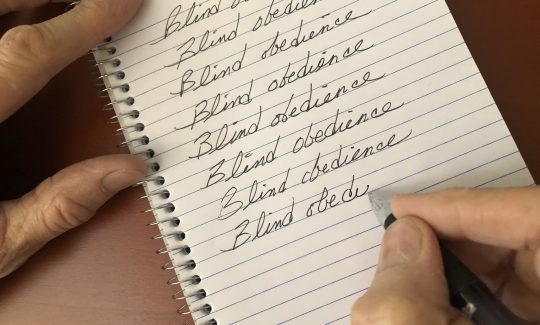 Blind
Blind obedience
Blind obedience
Blind obedience
Blind obedience
Blind obedience
Blind obedience
Blind obedi